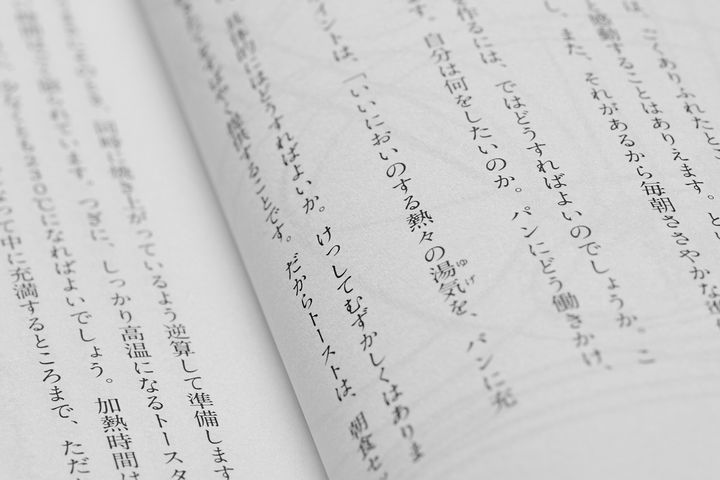 は、ごくありふれたとこ
と感動することはありえます。とい
し、また、それがあるから毎朝ささやかな準
を作るには、ではどうすればよいのでしょうか。こ
す。自分は何をしたいのか。パンにどう働きかけ、
イントは、「いいにおいのする熱々の湯気を、パンに充
具体的にはどうすればよいか。けっしてむずかしくはありま
提供することです。だからトーストは、朝食セ
同時に焼き上がっているよう逆算して準備します
られています。つぎに、しっかり高温になるトースタ
230℃になればよいでしょう。加熱時間は
って中に充満するところまで、ただ